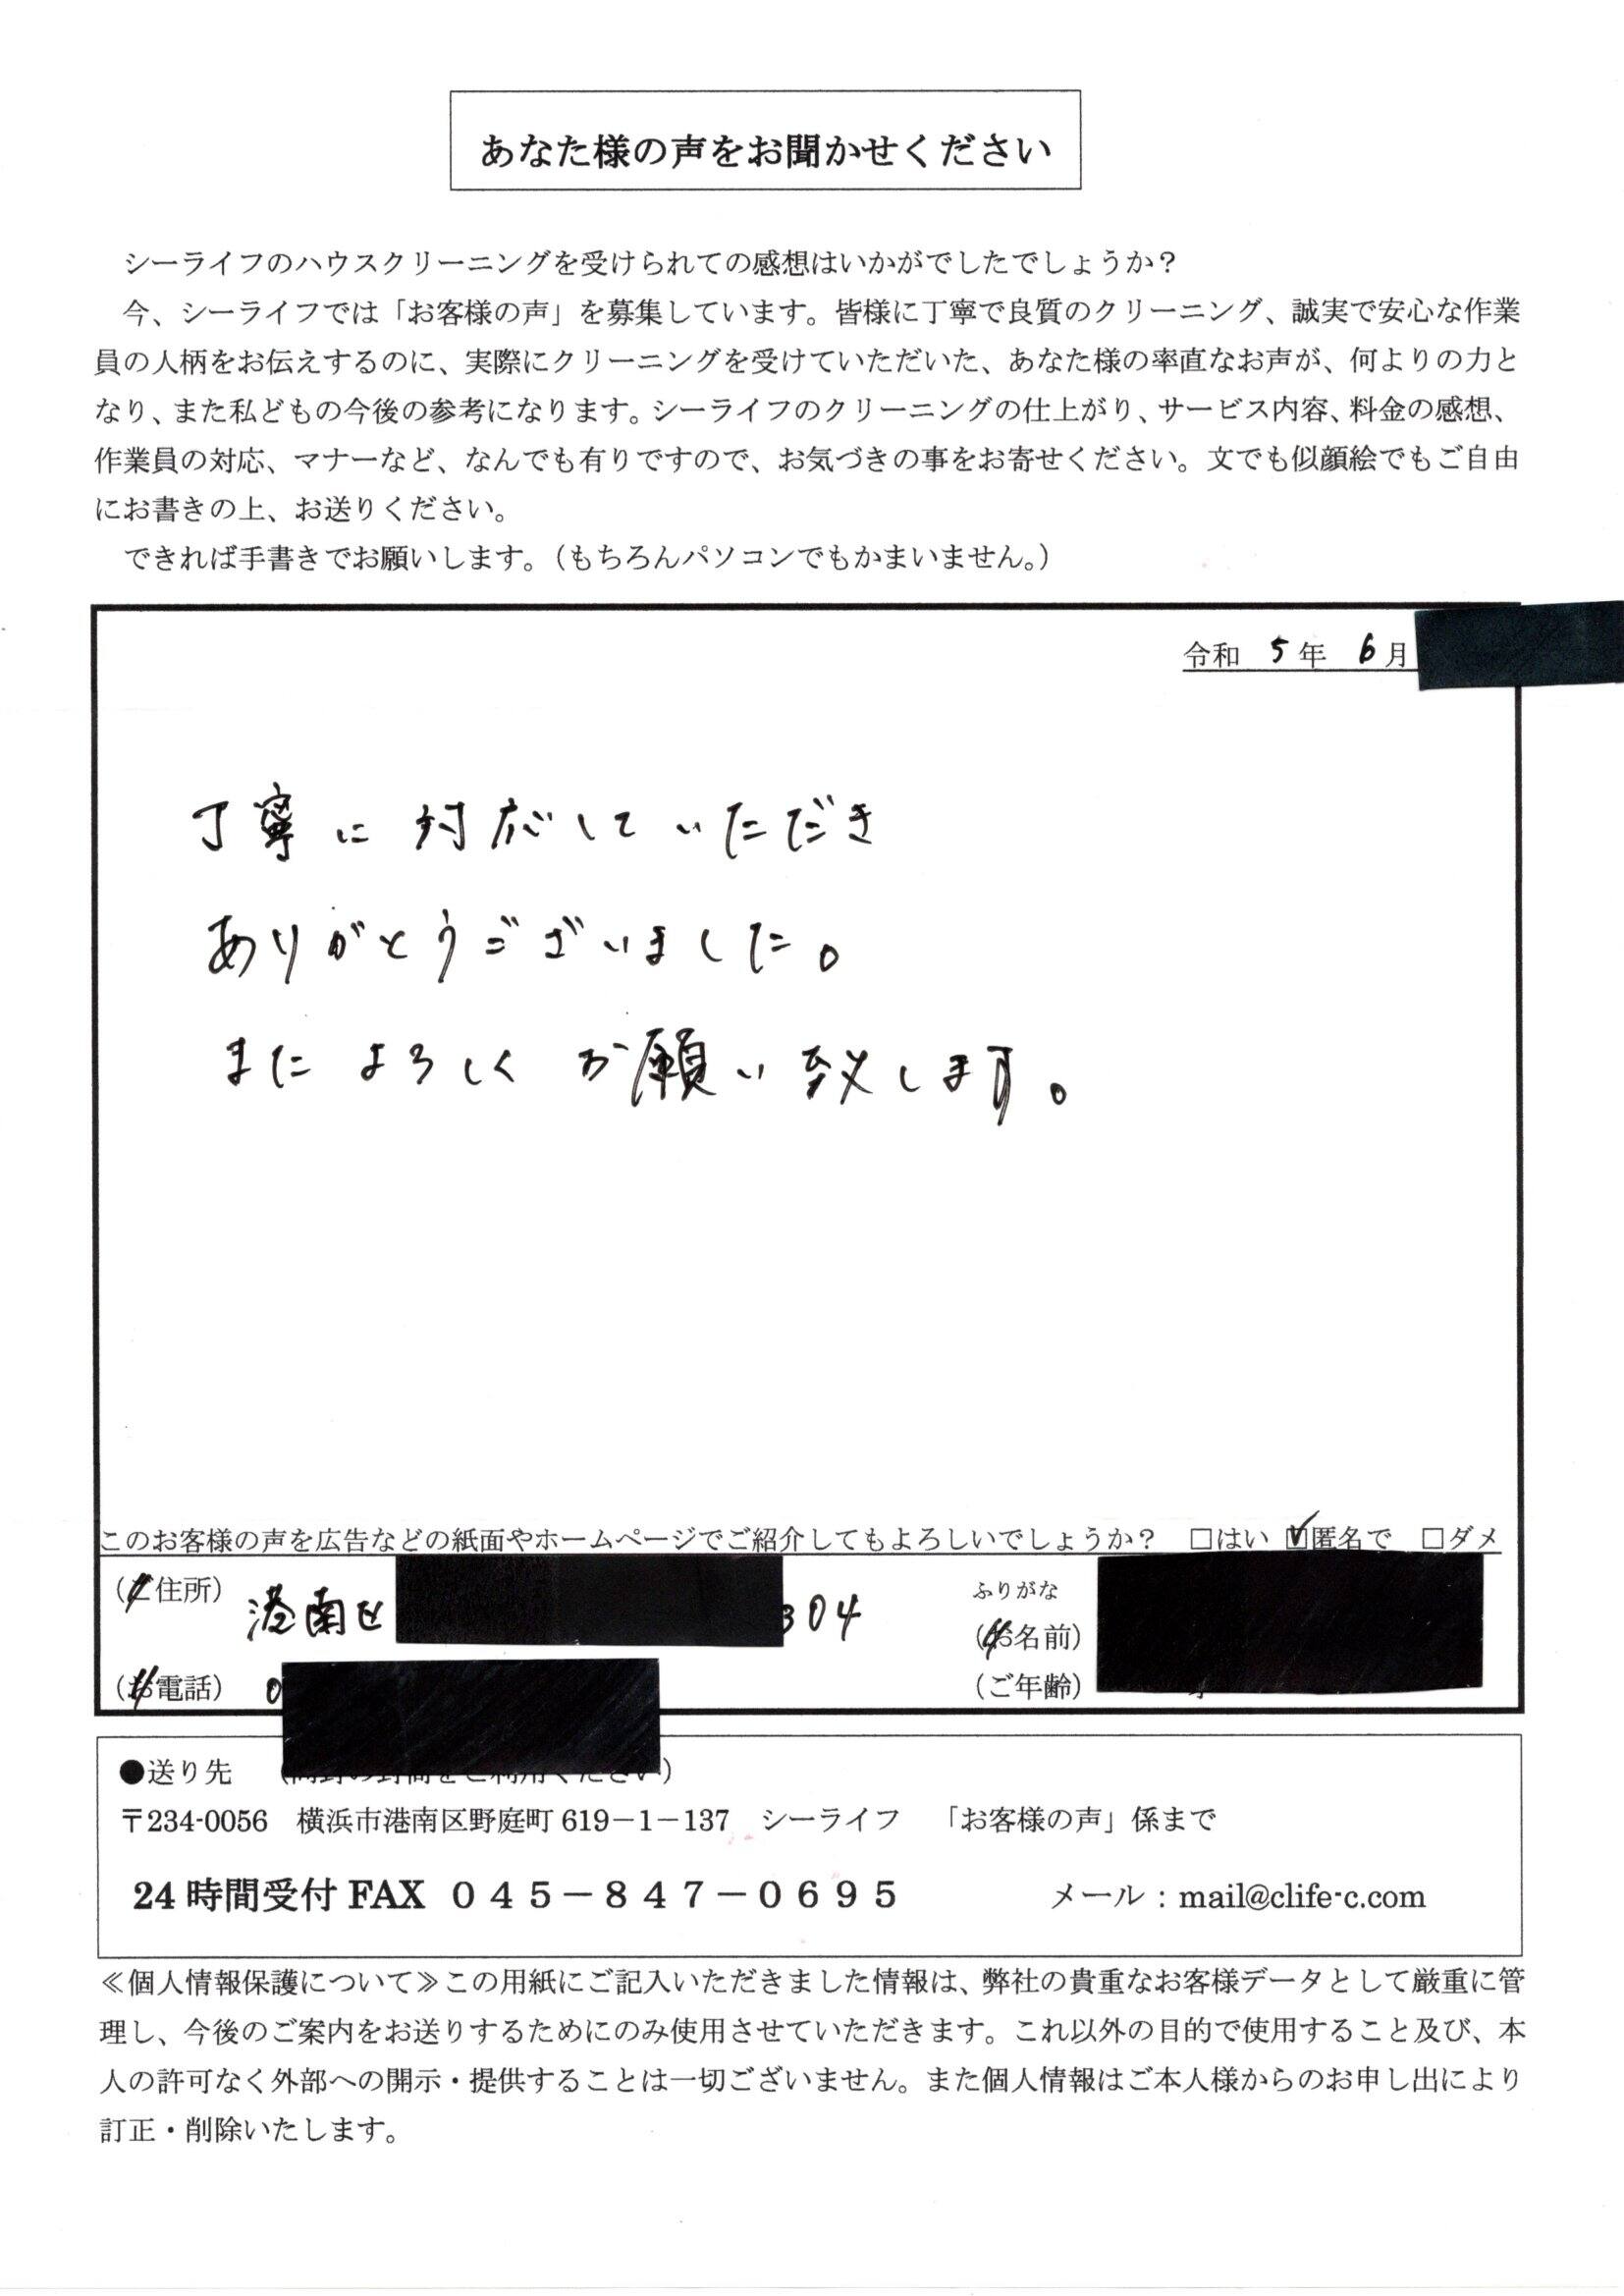 あなた様の声をお聞かせください
シーライフのハウスクリーニングを受けられての感想はいかがでしたでしょうか？
今、シーライフでは「お客様の声」を募集しています。皆様に丁寧で良質のクリーニング、誠実で安心な作業
員の人柄をお伝えするのに、実際にクリーニングを受けていただいた、あなた様の率直なお声が、何よりの力と
なり、また私どもの今後の参考になります。シーライフのクリーニングの仕上がり、サービス内容、料金の感想、
作業員の対応、マナーなど、なんでも有りですので、お気づきの事をお寄せください。文でも似顔絵でもご自由
にお書きの上、お送りください。
できれば手書きでお願いします。（もちろんパソコンでもかまいません。）
令和 5 年 6 月
丁寧に対応していただき
ありがとうございました。
またよろしくお願い致します。
このお客様の声を広告などの紙面やホームページでご紹介してもよろしいでしょうか？ □はい ☑匿名で □ダメ
(ご住所) 港南区 304
ふりがな
(お名前)
(お電話) 0
(ご年齢)
●送り先
〒234-0056 横浜市港南区野庭町 619－1－137 シーライフ 「お客様の声」係まで
24 時間受付 FAX ０４５－８４７－０６９５ メール：mail@clife-c.com
≪個人情報保護について≫この用紙にご記入いただきました情報は、弊社の貴重なお客様データとして厳重に管
理し、今後のご案内をお送りするためにのみ使用させていただきます。これ以外の目的で使用すること及び、本
人の許可なく外部への開示・提供することは一切ございません。また個人情報はご本人様からのお申し出により
訂正・削除いたします。